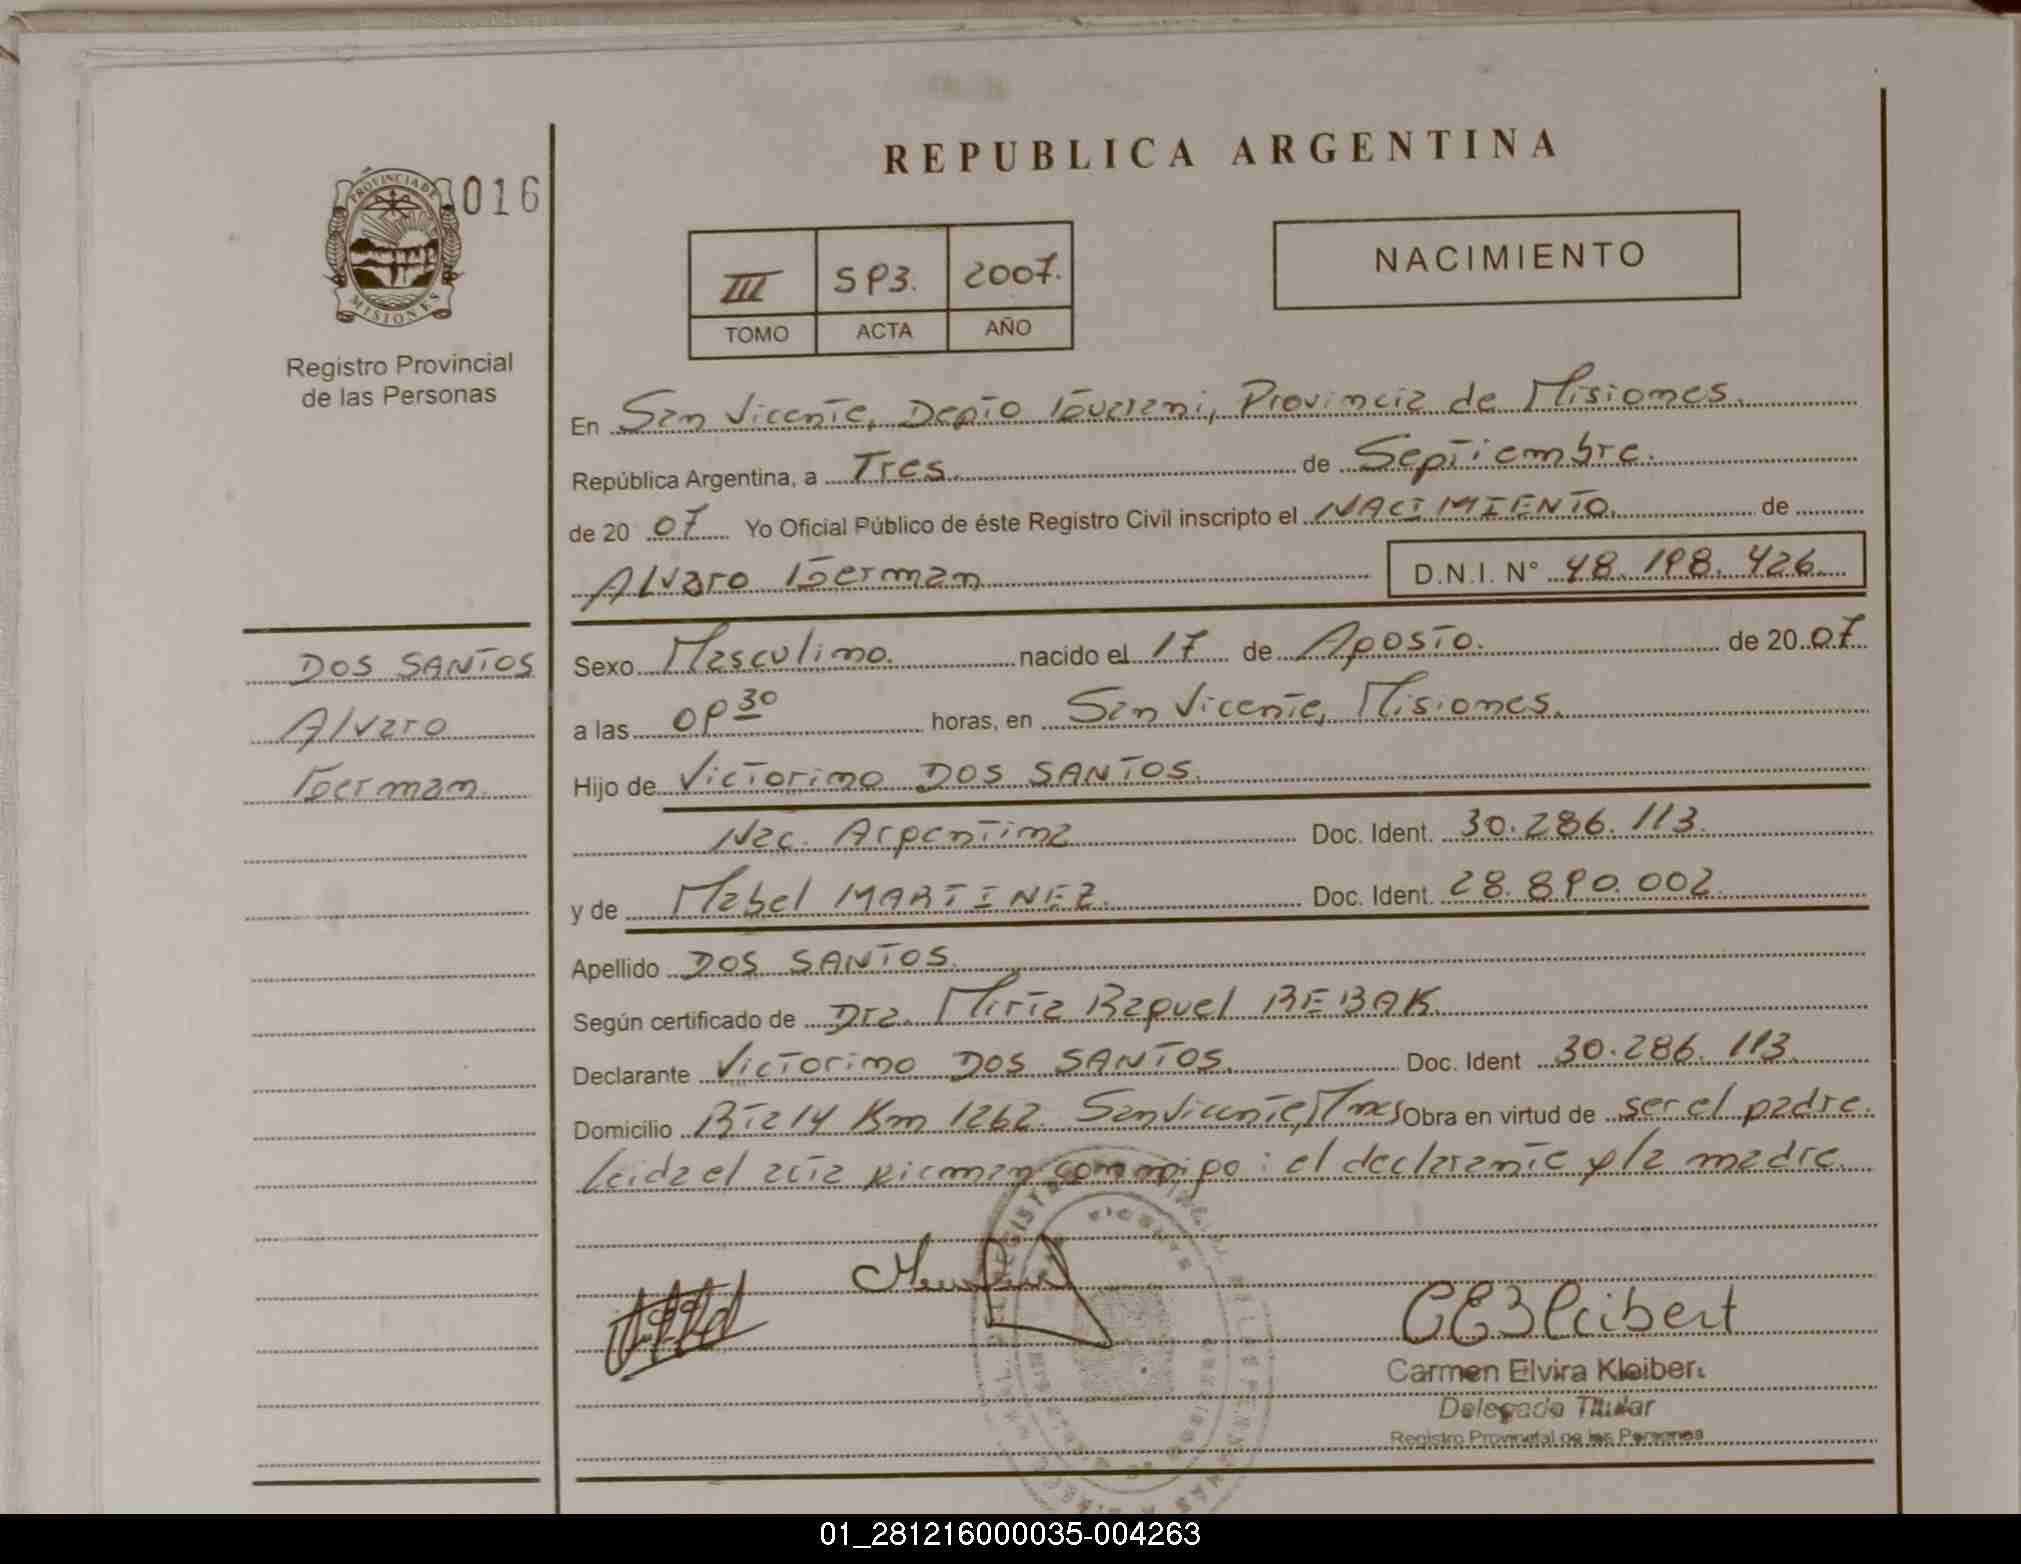 REPUBLICA ARGENTINA
PROVINCIA DE MISIONES
016
III 593. 2007.
TOMO ACTA AÑO
NACIMIENTO
Registro Provincial
de las Personas
En San Vicente, Depto Guarani, Provincia de Misiones.
República Argentina, a Tres. de Septiembre.
de 20 07 Yo Oficial Público de éste Registro Civil inscripto el NACIMIENTO. de
Alvaro German D.N.I. N° 48.198.426.
DOS SANTOS
Alvaro
German.
Sexo Masculino. nacido el 17 de Agosto. de 20 07
a las 09 30 horas, en San Vicente, Misiones.
Hijo de Victorino DOS SANTOS.
Nac. Argentina Doc. Ident. 30.286.113.
y de Mabel MARTINEZ. Doc. Ident. 28.890.002.
Apellido DOS SANTOS.
Según certificado de Dra. Mirta Raquel REBAK.
Declarante Victorino DOS SANTOS. Doc. Ident 30.286.113.
Domicilio Rta 14 Km 1262. San Vicente, Mnes Obra en virtud de ser el padre.
Leida el acta firman conmigo: el declarante y la madre.
CEKleibert
Carmen Elvira Kleibert
Delegada Titular
Registro Provincial de las Personas
01_281216000035-004263